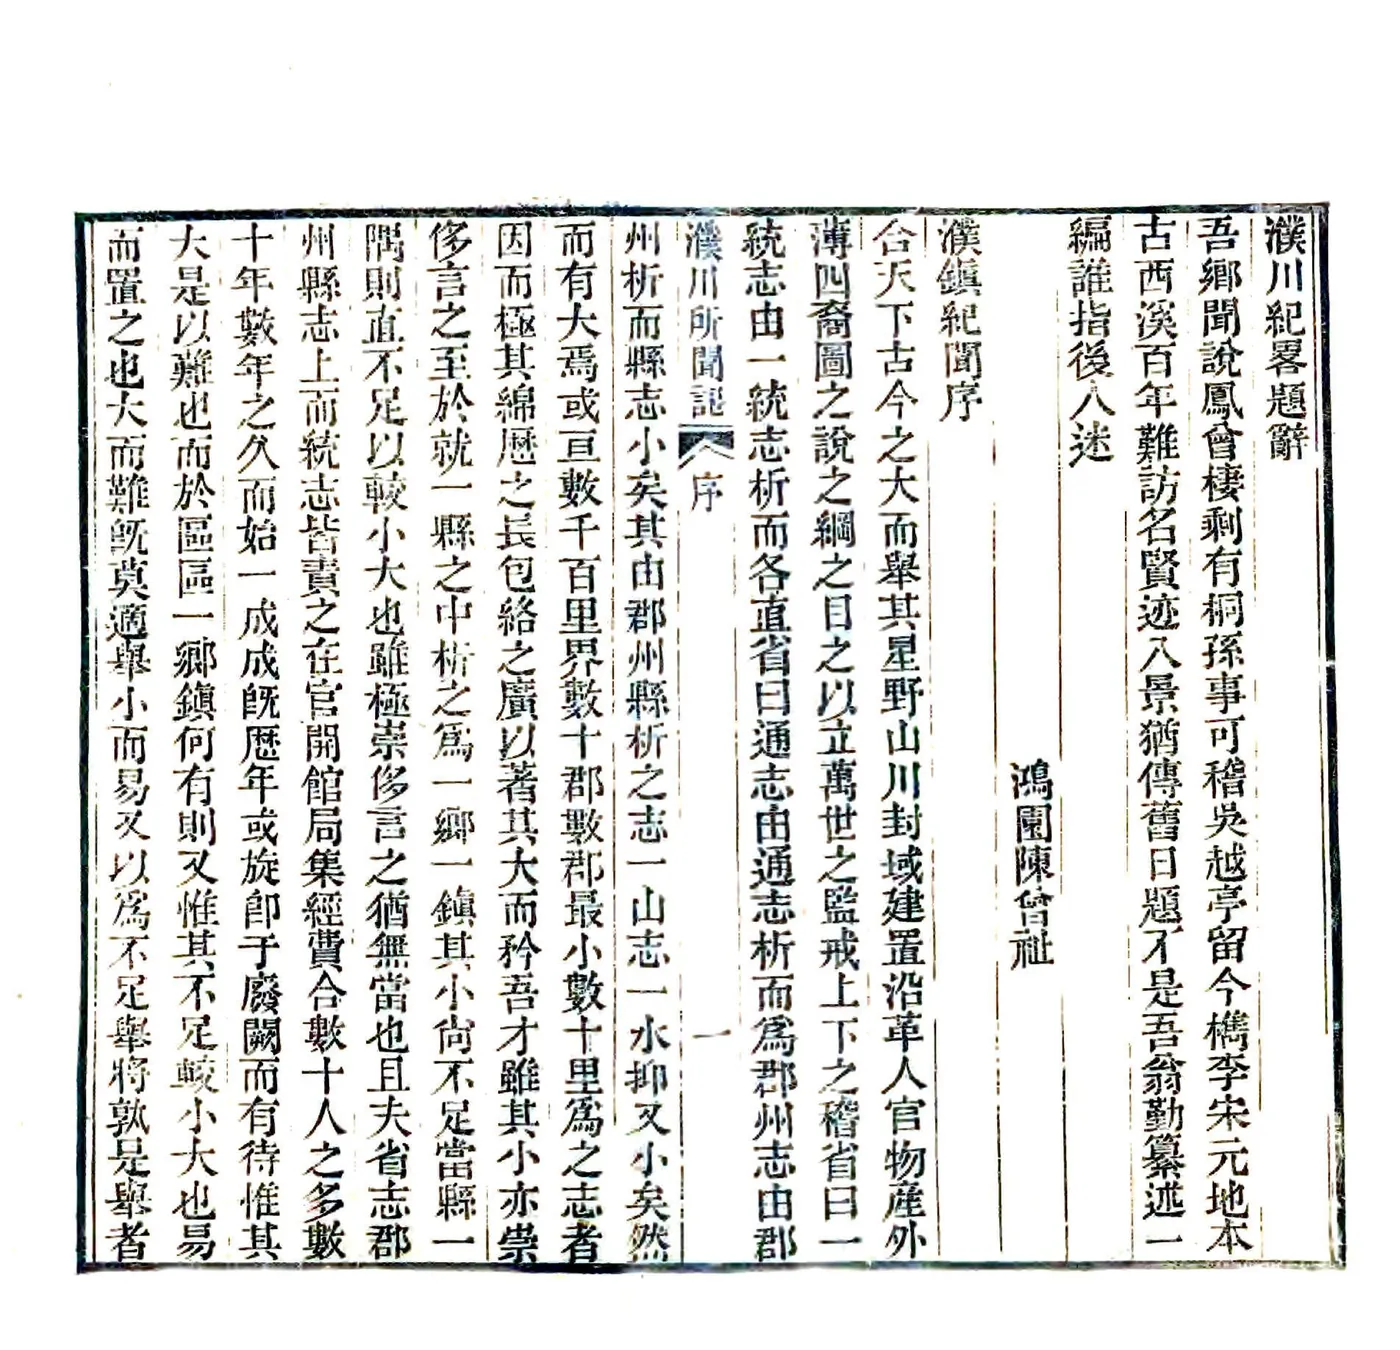 濮川紀畧題辭
吾鄉聞說鳳曾棲剩有桐孫事可稽吳越亭留今檇李宋元地本
古西溪百年難訪名賢迹八景猶傳舊日題不是吾翁勤纂述一
編誰指後人迷
鴻園陳曾祉
濮鎮紀聞序
合天下古今之大而舉其星野山川封域建置沿革人官物產外
薄四裔圖之說之綱之目之以立萬世之監戒上下之稽省曰一
統志由一統志析而各直省曰通志由通志析而爲郡州志由郡
濮川所聞記 序 一
州析而縣志小矣其由郡州縣析之志一山志一水抑又小矣然
而有大焉或亘數千百里界數十郡數郡最小數十里爲之志者
因而極其綿歷之長包絡之廣以著其大而矜吾才雖其小亦崇
侈言之至於就一縣之中析之爲一鄉一鎮其小尙不足當縣一
隅則直不足以較小大也雖極崇侈言之猶無當也且夫省志郡
州縣志上而統志皆責之在官開館局集經費合數十人之多數
十年數年之久而始一成成旣歷年或旋卽于廢闕而有待惟其
大是以難也而於區區一鄉鎮何有則又惟其不足較小大也易
而置之也大而難旣莫適舉小而易又以爲不足舉將孰是舉者